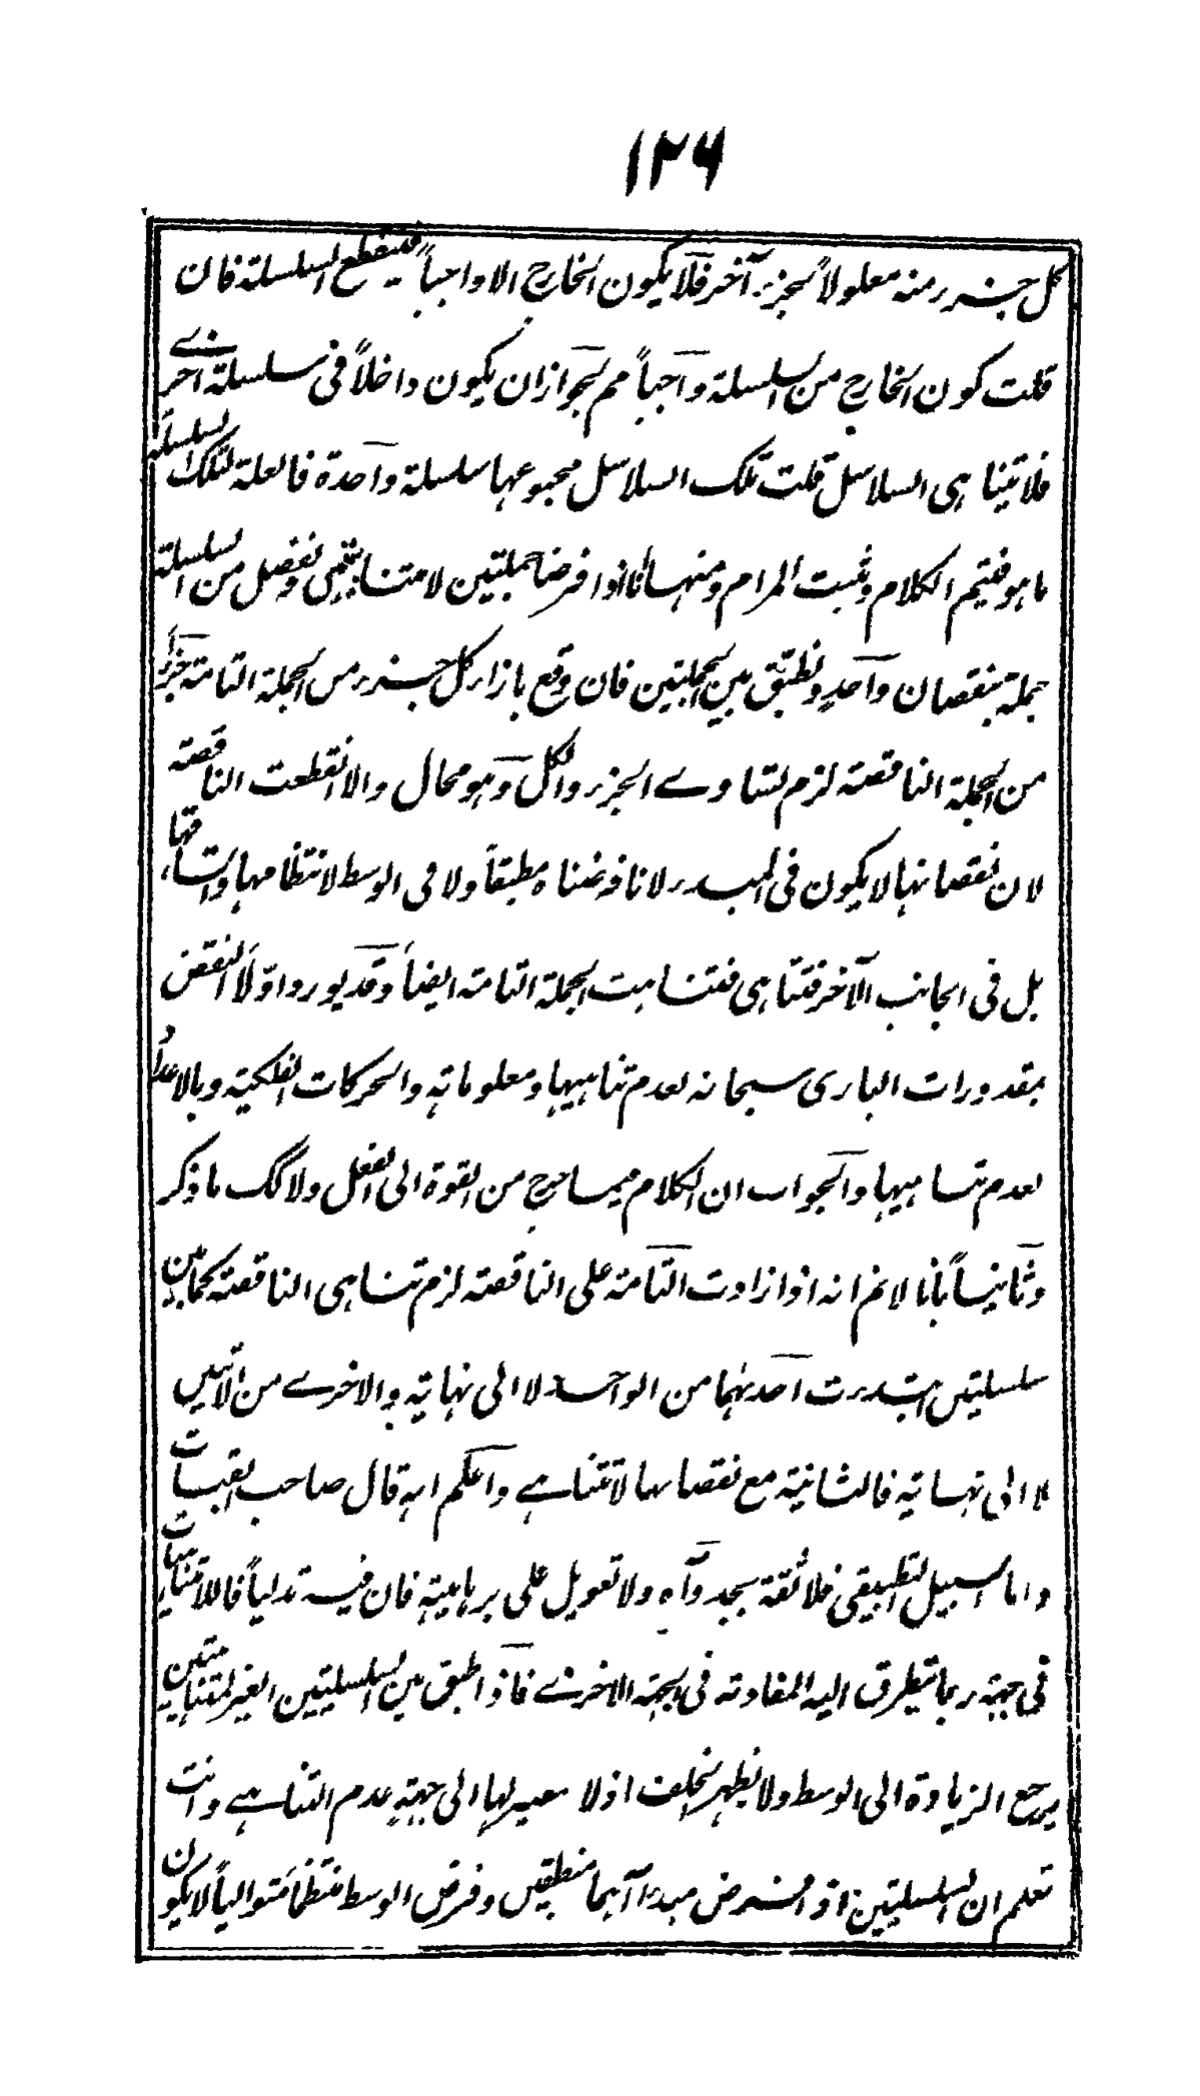 ١٢٦
كل جزء منه معلولاً لجزء آخر فلا يكون الخارج الا واجباً فينقطع السلسلة فان
قلت كون الخارج من السلسلة واجباً مم لجواز ان يكون داخلاً فى سلسلة اخرے
فلا تتناهى السلاسل قلت تلك السلاسل مجموعها سلسلة واحدة فالعلة لتلك السلسلة
ما هو فيتم الكلام ويثبت المرام ومنها انا اذا فرضنا جملتين لا متناهيتين ونفصل من السلسلة
جملة بنقصان واحد ونطبق بين الجملتين فان وقع بازاء كل جزء من الجملة التامة جزءاً
من الجملة الناقصة لزم تساوے الجزء والكل وهو محال والا انقطعت الناقصة
لان نقصانها لا يكون فى المبدء لانا فرضناه مطبقاً ولا فى الوسط لانتظامها واتساقها
بل فى الجانب الآخر فتتناهى فتناهت الجملة التامة ايضاً وقد يورد اوّلاً النقض
بمقدورات البارى سبحانه لعدم تناهيها ومعلوماته والحركات الفلكية وبالاعداد
لعدم تناهيها والجواب ان الكلام فيما خرج من القوة الى الفعل ولا كك ما ذكر
وثانياً بانا لانم انه اذا زادت التامة على الناقصة لزم تناهى الناقصة كما بين
سلسلتين ابتدءت احدٰهما من الواحد لا الى نهاية والاخرے من الاثنين
لا الى نهاية فالثانية مع نقصانها لا تتناهے واعلم انه قال صاحب القبسات
واما السبيل التطبيقى فلا ثقة بجدواه ولا تعويل على برهانيته فان فيه تدليساً فاللامتناهيات
فى جهة ربما يتطرق اليه المفاوتة فى الجهة الاخرے فاذا طبق بين السلسلتين الغير المتناهيتين
يرجع الزيادة الى الوسط ولا يظهر الخلف اذ لا مصير لها الى جهة عدم التناهے وانت
تعلم ان السلسلتين اذا فرض مبدءاآهما منطبقين وفرض الوسط منتظما متوالياً لا يكون